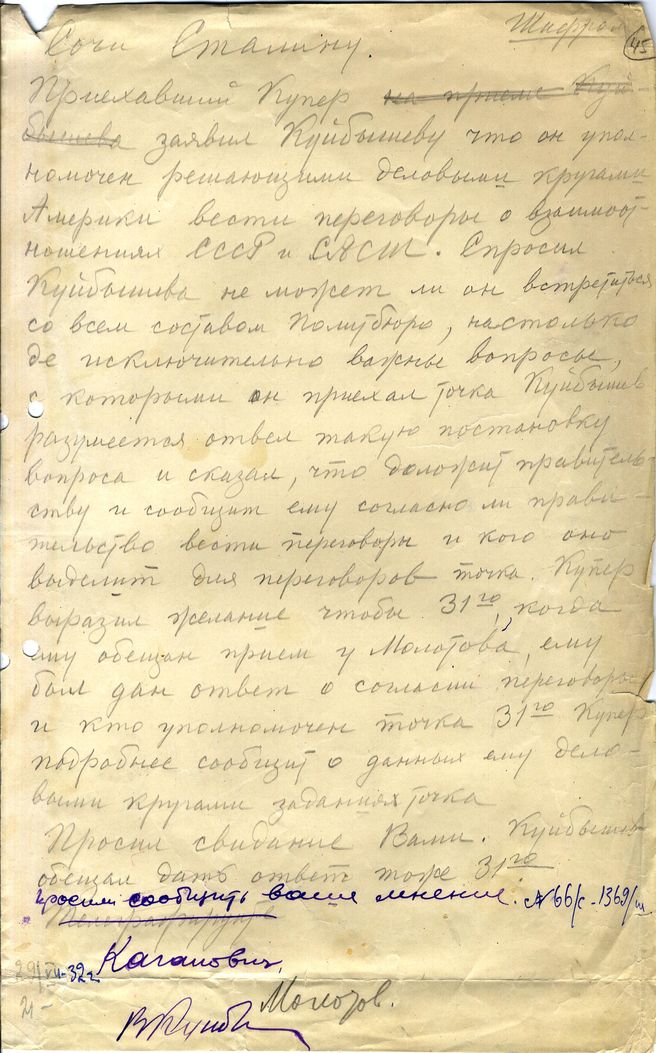 Шифром
45
Сочи Сталину.
Приехавший Купер на приеме Куй-
бышева заявил Куйбышеву что он упол-
номочен решающими деловыми кругами
Америки вести переговоры о взаимоот-
ношениях СССР и САСШ. Спросил
Куйбышева не может ли он встретиться
со всем составом Политбюро, настолько
де исключительно важные вопросы,
с которыми он приехал точка Куйбышев
разумеется отвел такую постановку
вопроса и сказал, что доложит правитель-
ству и сообщит ему согласно ли прави-
тельство вести переговоры и кого оно
выделит для переговоров точка. Купер
выразил желание чтобы 31го, когда
ему обещан прием у Молотова, ему
был дан ответ о согласии переговоры
и кто уполномочен точка 31го Купер
подробнее сообщит о данных ему дело-
выми кругами заданиях точка
Просил свидание Вами. Куйбышев
обещал дать ответ тоже 31го
просим сообщить ваше мнение. №66/с-1369/ш
Телеграфируйте
Каганович,
29/VII-32г
Молотов.
21-
ВКуйб